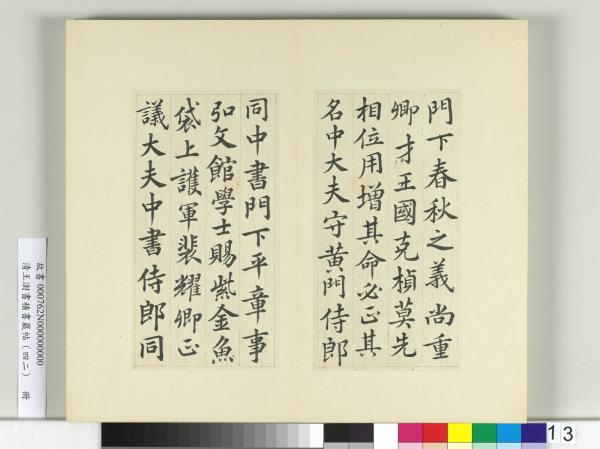 門下春秋之義尚重
卿才王國克楨莫先
相位用增其命必正其
名中大夫守黄門侍郎
同中書門下平章事
弘文館學士賜紫金魚
袋上護軍裴耀卿正
議大夫中書侍郎同
故書000762N000000000
清王澍書積書巖帖(四二) 冊
13